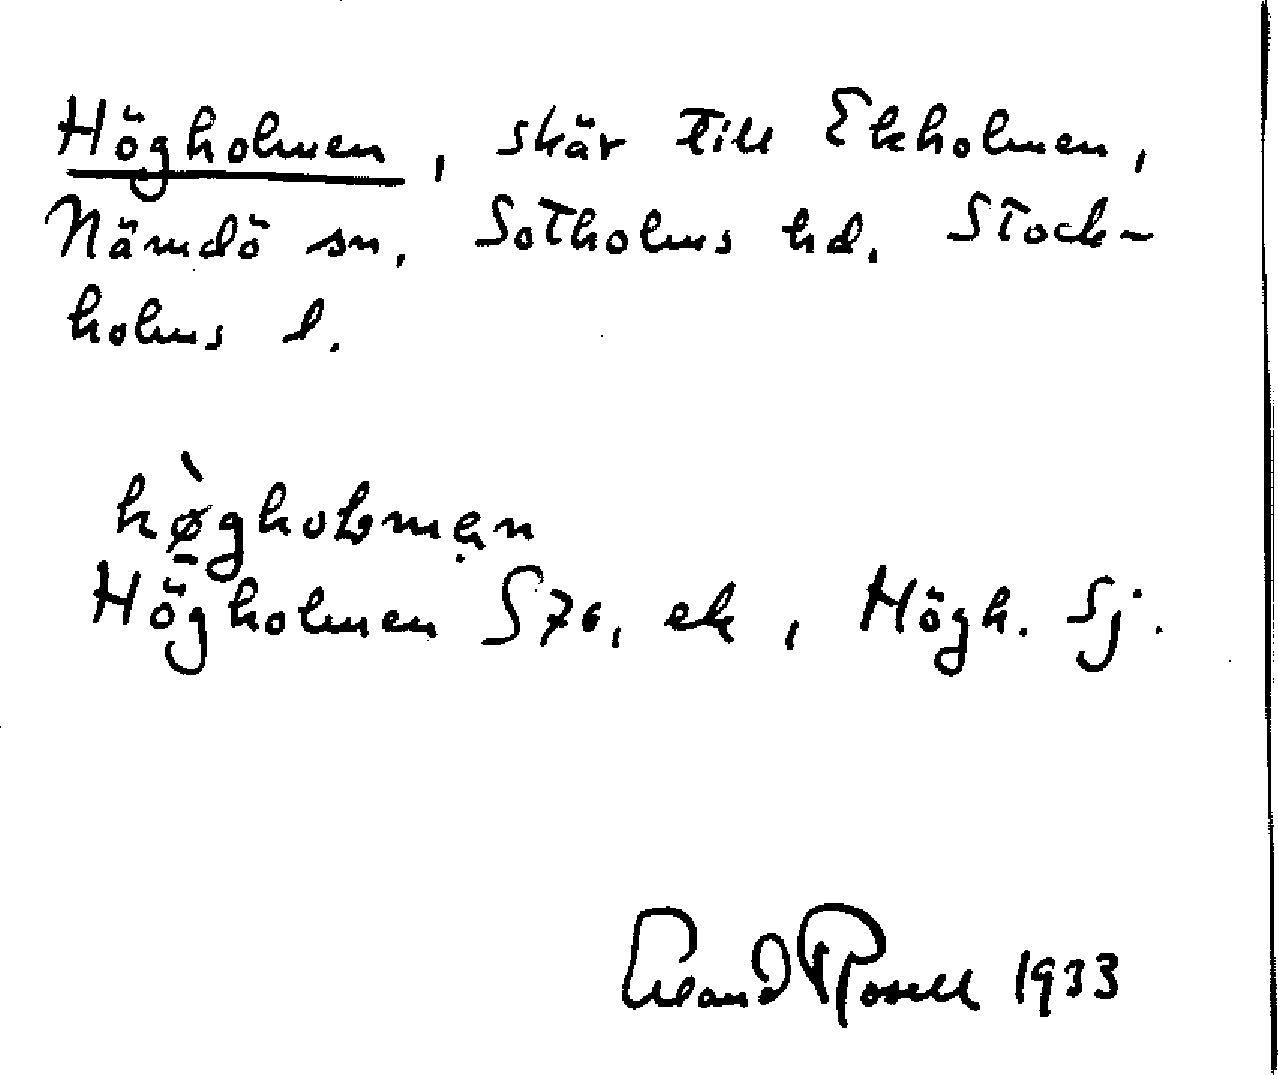 Högholmen, skär till Ekholmen,
Nämdö sn, Sotholms hd. Stock-
holms l.
hø̀gholmən
Högholmen S76, ek, Högh. Sj.
Erland Rosell 1933